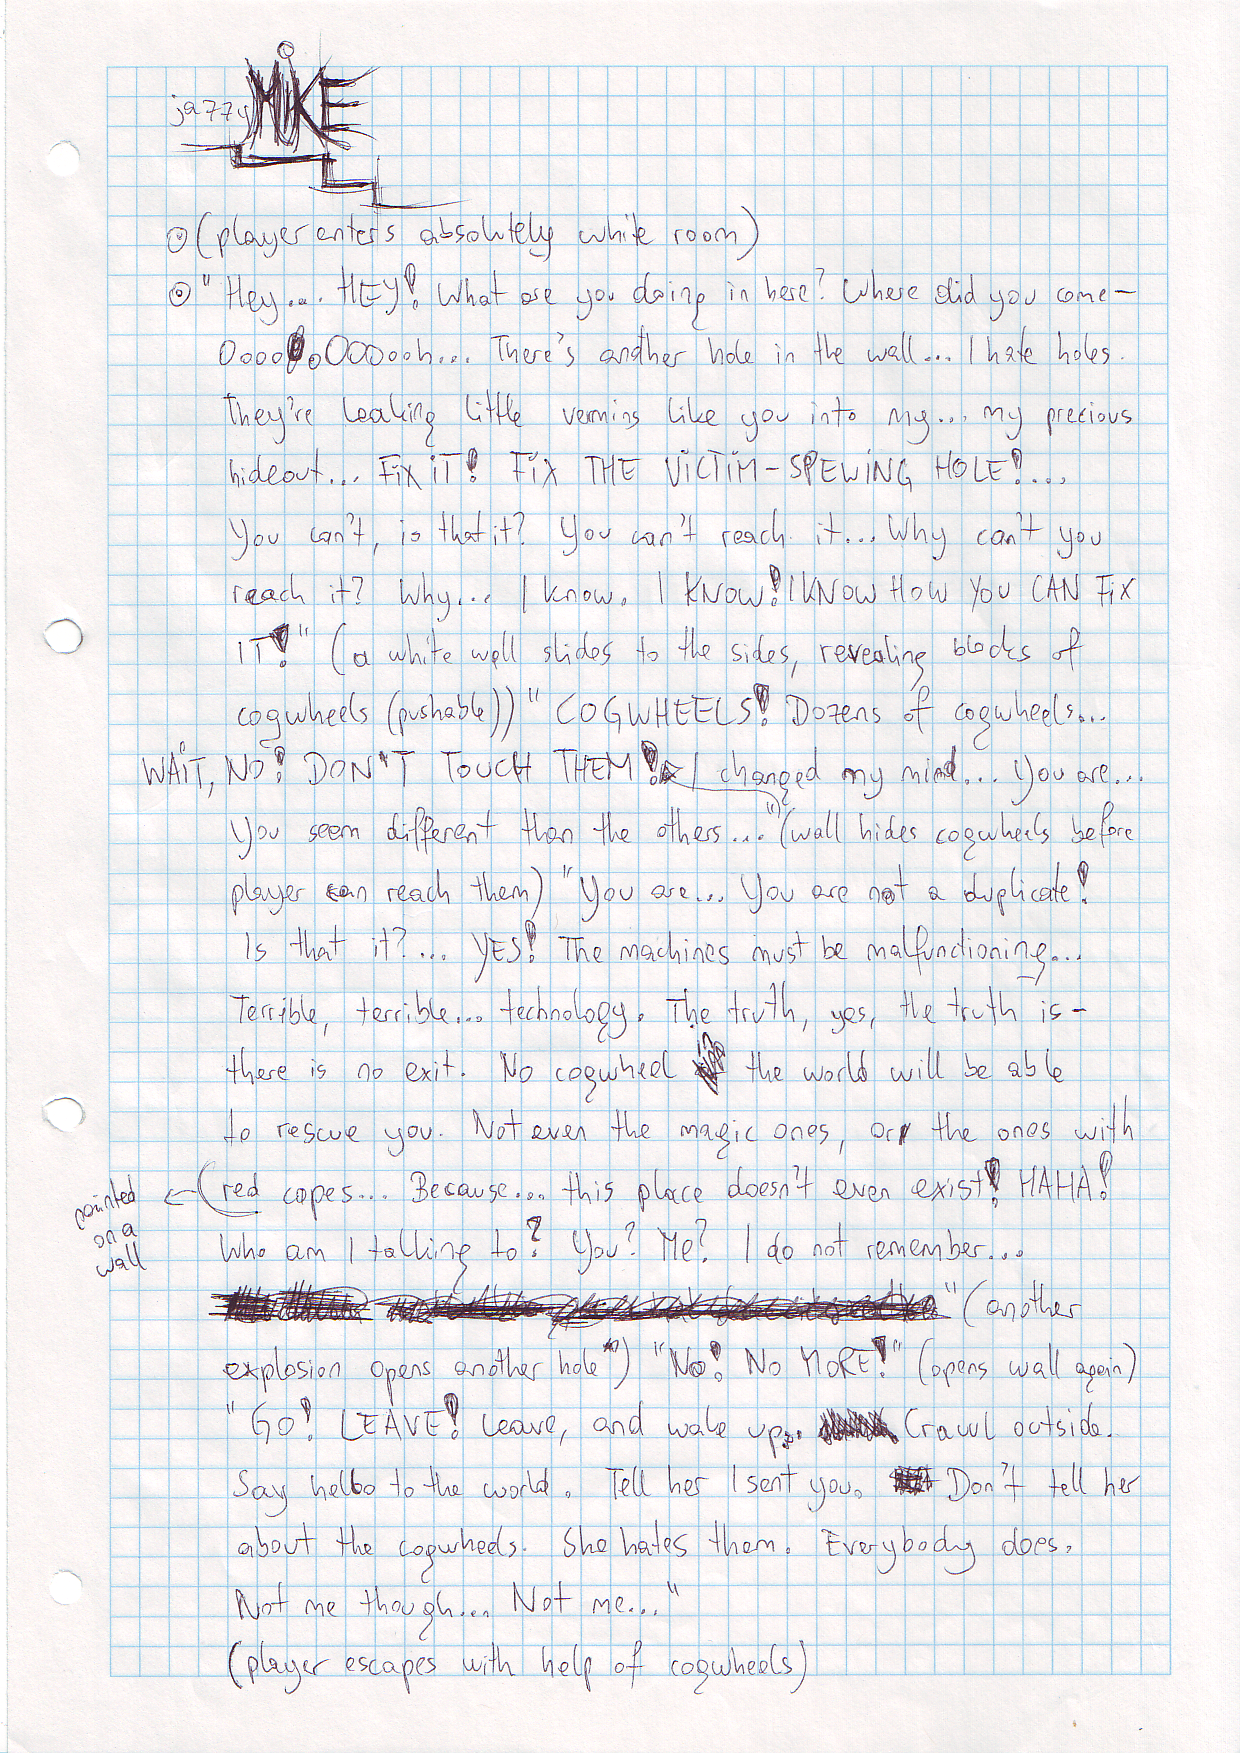 jazzy MIKE
(player enters absolutely white room)
"Hey... HEY! What are you doing in here? Where did you come–
OoooOoOOOoooh... There's another hole in the wall... I hate holes.
They're leaking little vermins like you into my... my precious
hideout... FiX iT! FiX THE ViCTiM-SPEWiNG HOLE!...
You can't, is that it? You can't reach it... Why can't you
reach it? Why... I know. I KNOW! I KNOW HOW YOU CAN FiX
IT!" (a white wall slides to the sides, revealing blocks of
cogwheels (pushable)) "COGWHEELS! Dozens of cogwheels...
WAiT, NO! DON'T TOUCH THEM! I changed my mind... You are...
You seem different than the others..." (wall hides cogwheels before
player can reach them) "You are... You are not a duplicate!
Is that it?... YES! The machines must be malfunctioning...
Terrible, terrible... technology. The truth, yes, the truth is –
there is no exit. No cogwheel in the world will be able
to rescue you. Not even the magic ones, or the ones with
red capes... Because... this place doesn't even exist! HAHA!
painted
on a
wall
Who am I talking to? You? Me? I do not remember...
" (another
explosion opens another hole) "No! NO MORE!" (opens wall again)
"GO! LEAVE! Leave, and wake up... Crawl outside.
Say hello to the world. Tell her I sent you. Don't tell her
about the cogwheels. She hates them. Everybody does.
Not me though... Not me..."
(player escapes with help of cogwheels)